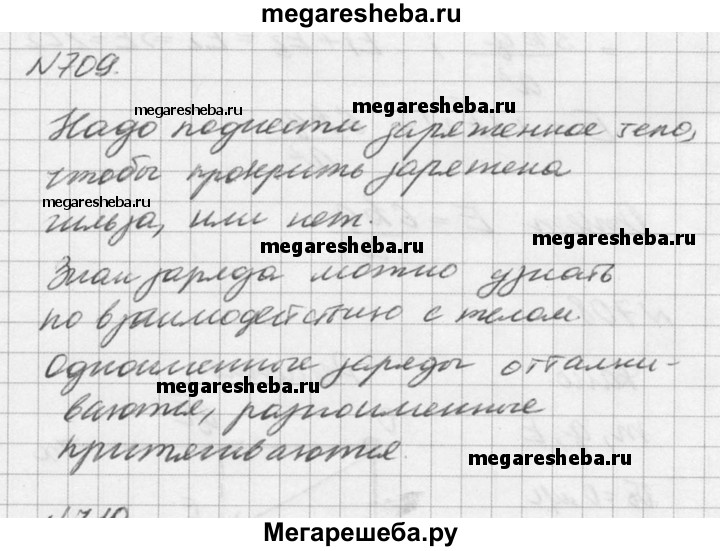 megaresheba.ru
№709.
megaresheba.ru
megaresheba.ru
Надо поднести заряженное тело,
чтобы проверить заряжена
megaresheba.ru
гильза, или нет.
megaresheba.ru
megaresheba.ru
Знак заряда можно узнать
по взаимодействию с телом.
Одноименные заряды отталки-
megaresheba.ru
ваются, разноименные
притягиваются.
megaresheba.ru
№710
Мегарешеба.ру